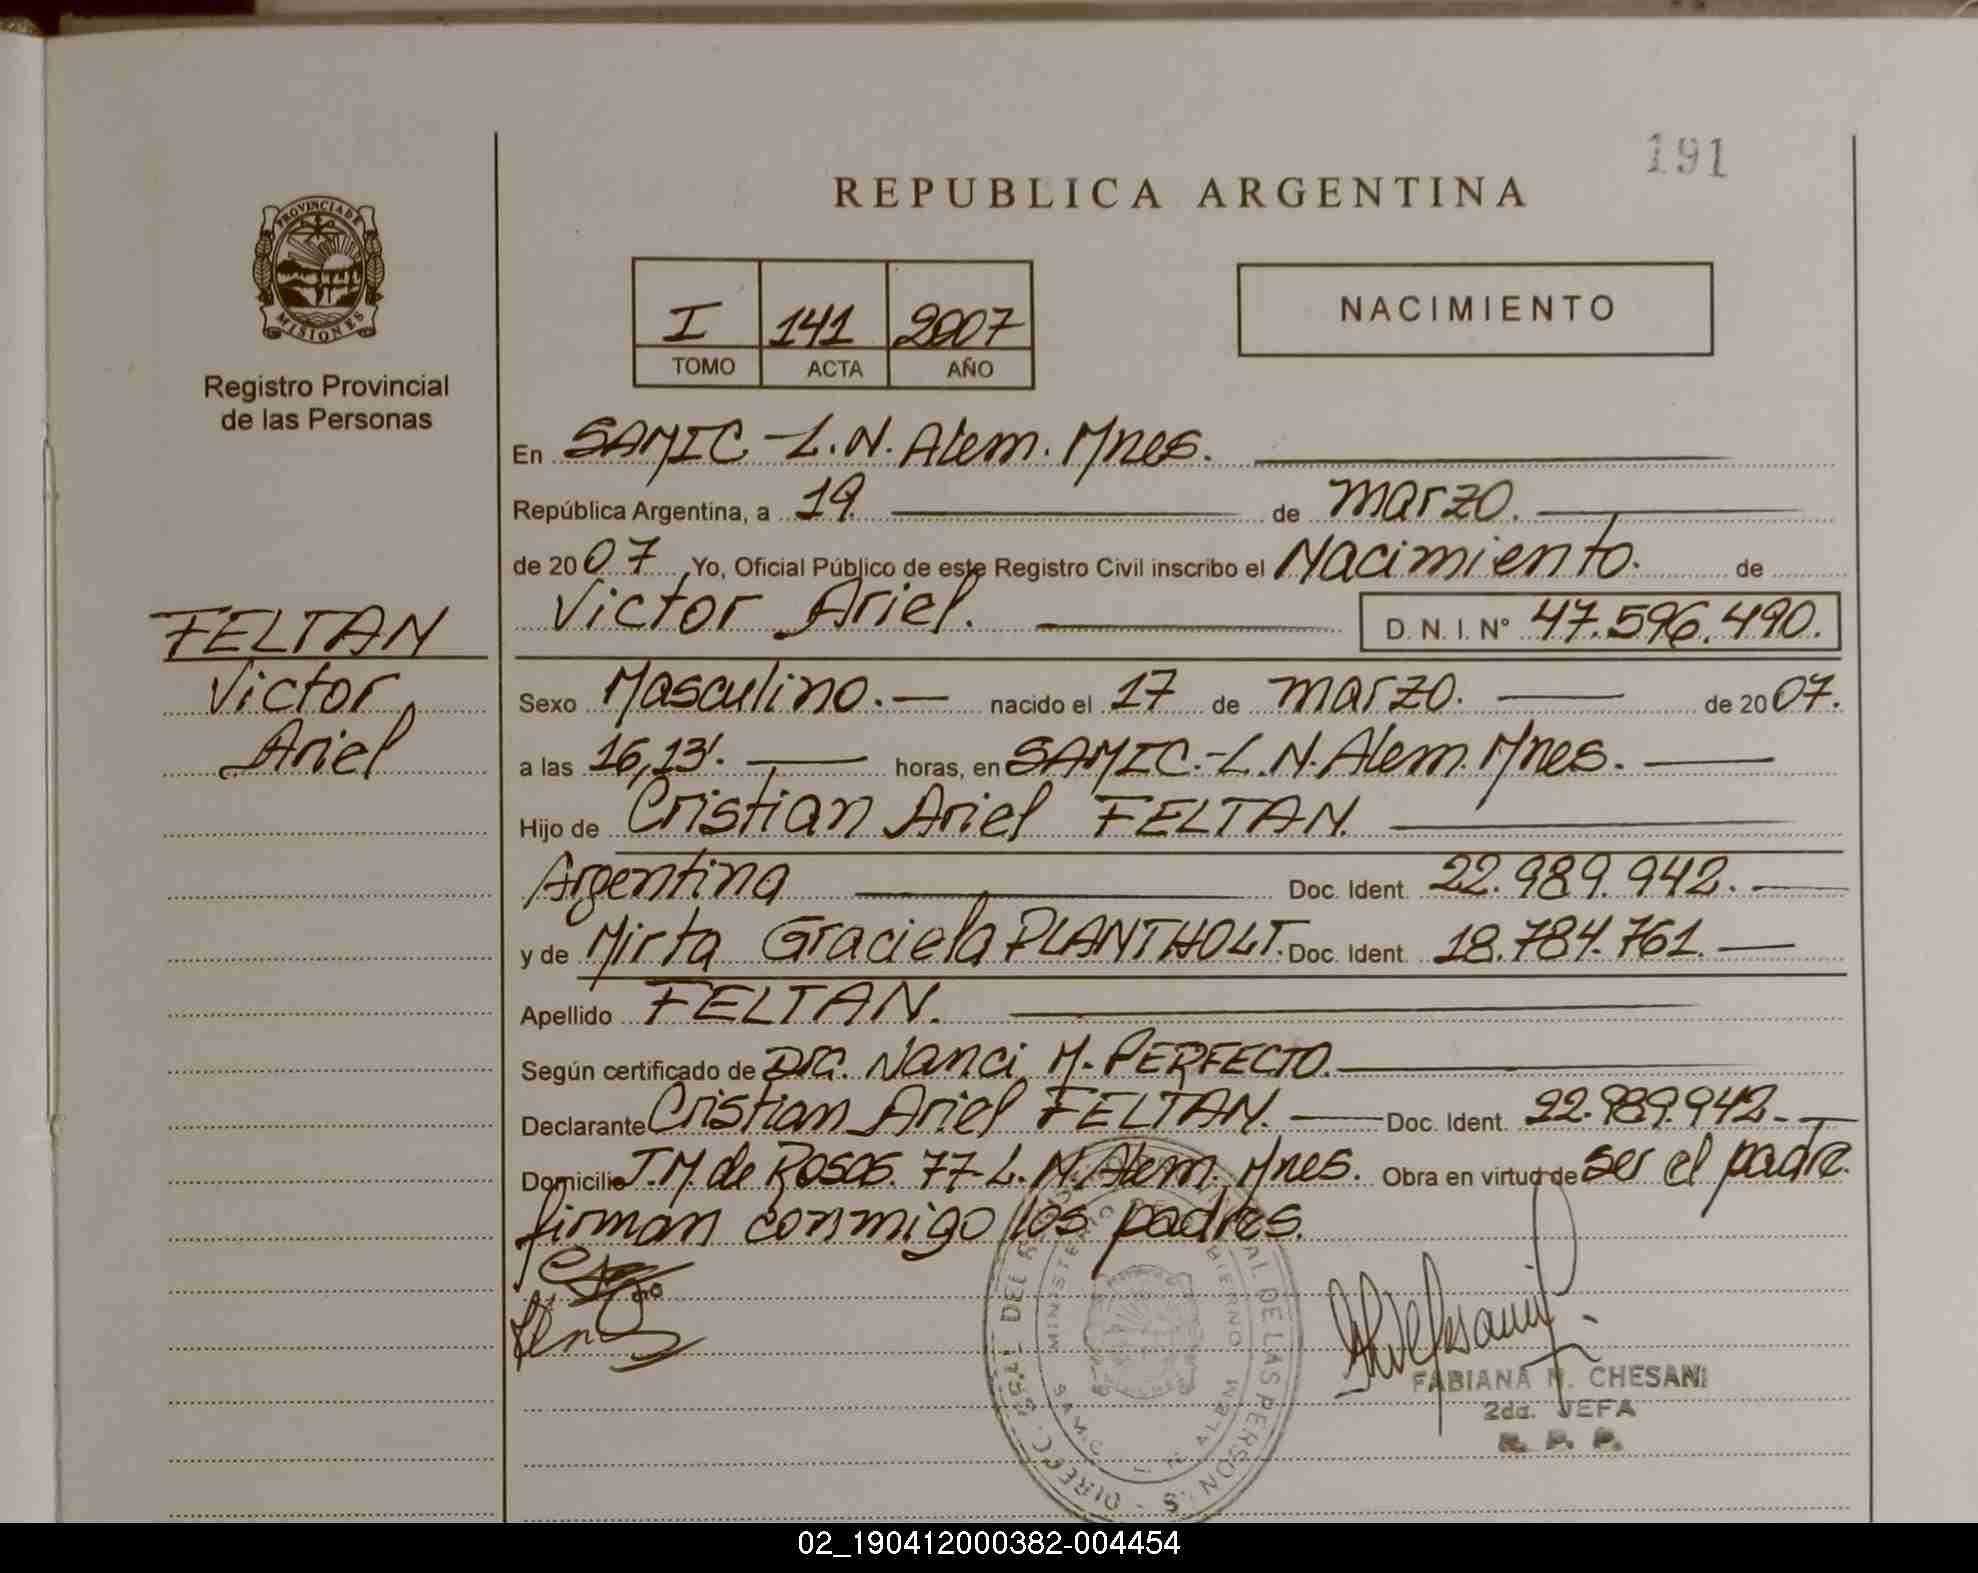 191
REPUBLICA ARGENTINA
PROVINCIA DE
MISIONES
Registro Provincial
de las Personas
I 141 2007
TOMO ACTA AÑO
NACIMIENTO
En SAMIC - L.N. Alem. Mnes.
República Argentina, a 19. de marzo.
de 2007 Yo, Oficial Público de este Registro Civil inscribo el Nacimiento. de
Victor Ariel. D. N. I. N° 47.596.490.
FELTAN
Victor
Ariel
Sexo Masculino. nacido el 17 de marzo. de 2007.
a las 16,13'. horas, en SAMIC.-L.N. Alem. Mnes.
Hijo de Cristian Ariel FELTAN.
Argentina Doc. Ident. 22.989.942.
y de Mirta Graciela PLANTHOLT. Doc. Ident. 18.784.761.
Apellido FELTAN.
Según certificado de Dra. Nanci M. PERFECTO.
Declarante Cristian Ariel FELTAN. Doc. Ident. 22.989.942.
Domicilio J.M. de Rosas. 77-L.N. Alem. Mnes. Obra en virtud de ser el padre.
firman conmigo los padres.
FABIANA N. CHESANI
2da. JEFA
R. P. P.
02_190412000382-004454